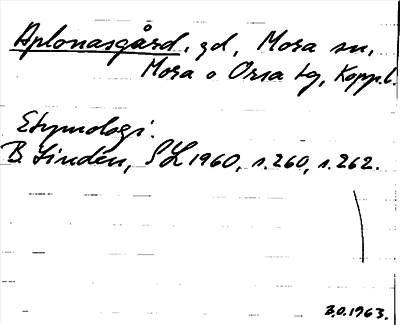 Aplonasgård, gd, Mora sn,
Mora o Orsa tg, Kopp.l.
Etymologi:
B. Lindén, SL 1960, s. 260, s. 262.
B.O. 1963.